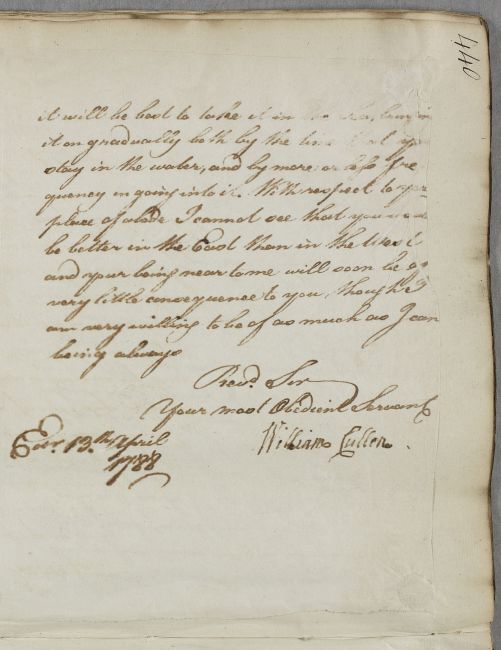 440
it will be best to take it in the
it on gradually both by the time that you
stay in the water, and by more or less fre
quency in going into it. With respect to your
place of abode I cannot see that you
be better in the East than in the West
and your being near to me will soon be of
very little consequence to you, though I
am very willing to be of as much as I can
being always
Revd. Sir
Your most Obedient Servant
William Cullen
Edr. 13.th April
1788